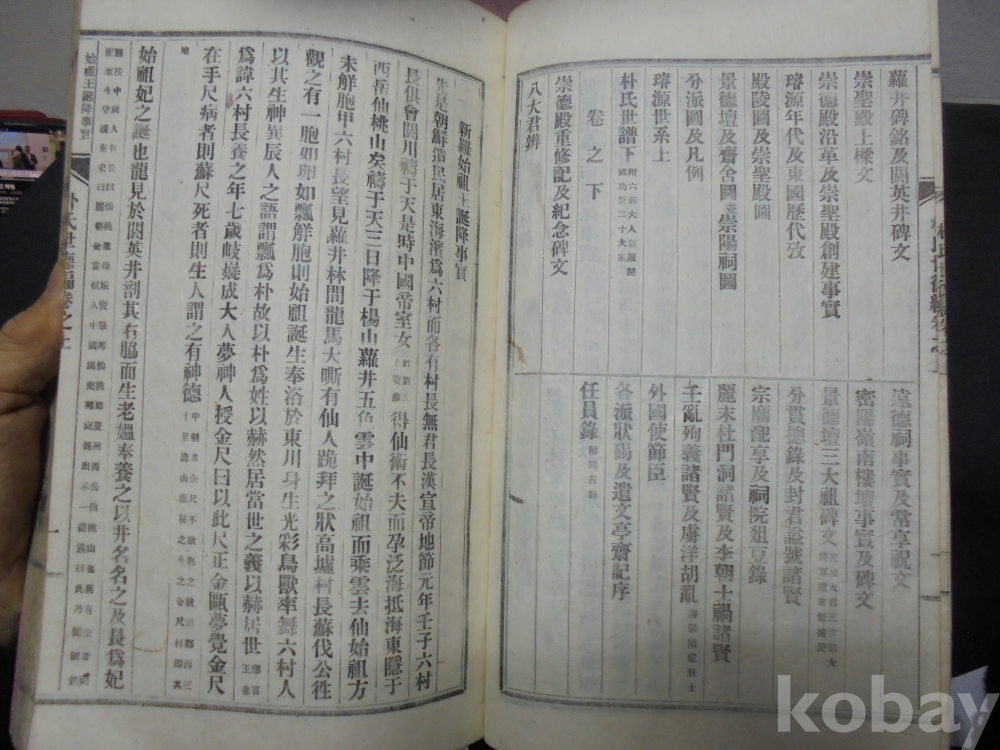 蘿井碑銘及閼英井碑文
崇聖殿上樑文
崇德殿沿革及崇聖殿創建事實
璿源年代及東國歷代攷
殿陵圖及崇聖殿圖
景德壇及齋舍圖並崇陽祠圖
分派圖及凡例
璿源世系上
朴氏世譜下 附六部大人新羅開國功臣二十大家
卷之下
崇德殿重修記及紀念碑文
八大君辨
遠德祠事實及常享祝文
密陽嶺南樓壇事實及碑文
景德壇三大祖碑文
分貫摠錄及封君謚號諸賢
宗廟配享及祠院俎豆錄
麗末杜門洞諸賢及李朝士禍諸賢
壬亂殉義諸賢及虜洋胡亂
外國使節臣
各派狀碣及遺文亭齋記序
任員錄
朴氏世德編卷之上
新羅始祖王誕降事實
先是朝鮮遺民居東海濱爲六村而各有村長無君長漢宣帝地節元年壬子六村
長俱會閼川禱于天是時中國帝室女 得仙術不夫而孕泛海抵海東隱于
西岳仙桃山矣禱于天三日降于楊山蘿井五色雲中誕始祖而乘雲去仙始祖方
未解胞甲六村長望見蘿井林間龍馬大嘶有仙人跪拜之狀高墟村長蘇伐公徃
觀之有一胞如卵如瓢解胞則始祖誕生奉浴於東川身生光彩鳥獸率舞六村人
以其生神異辰人之語謂瓢爲朴故以朴爲姓以赫然居當世之義以赫居世
爲諱六村長養之年七歲岐嶷成大人夢神人授金尺曰以此尺正金甌夢覺金尺
在手尺病者則蘇尺死者則生人謂之有神德
始祖妃之誕也龍見於閼英井剖其右脇而生老媼奉養之以井名名之及長爲妃
始祖王誕降事實
朴氏世德編卷之上
一
kobay